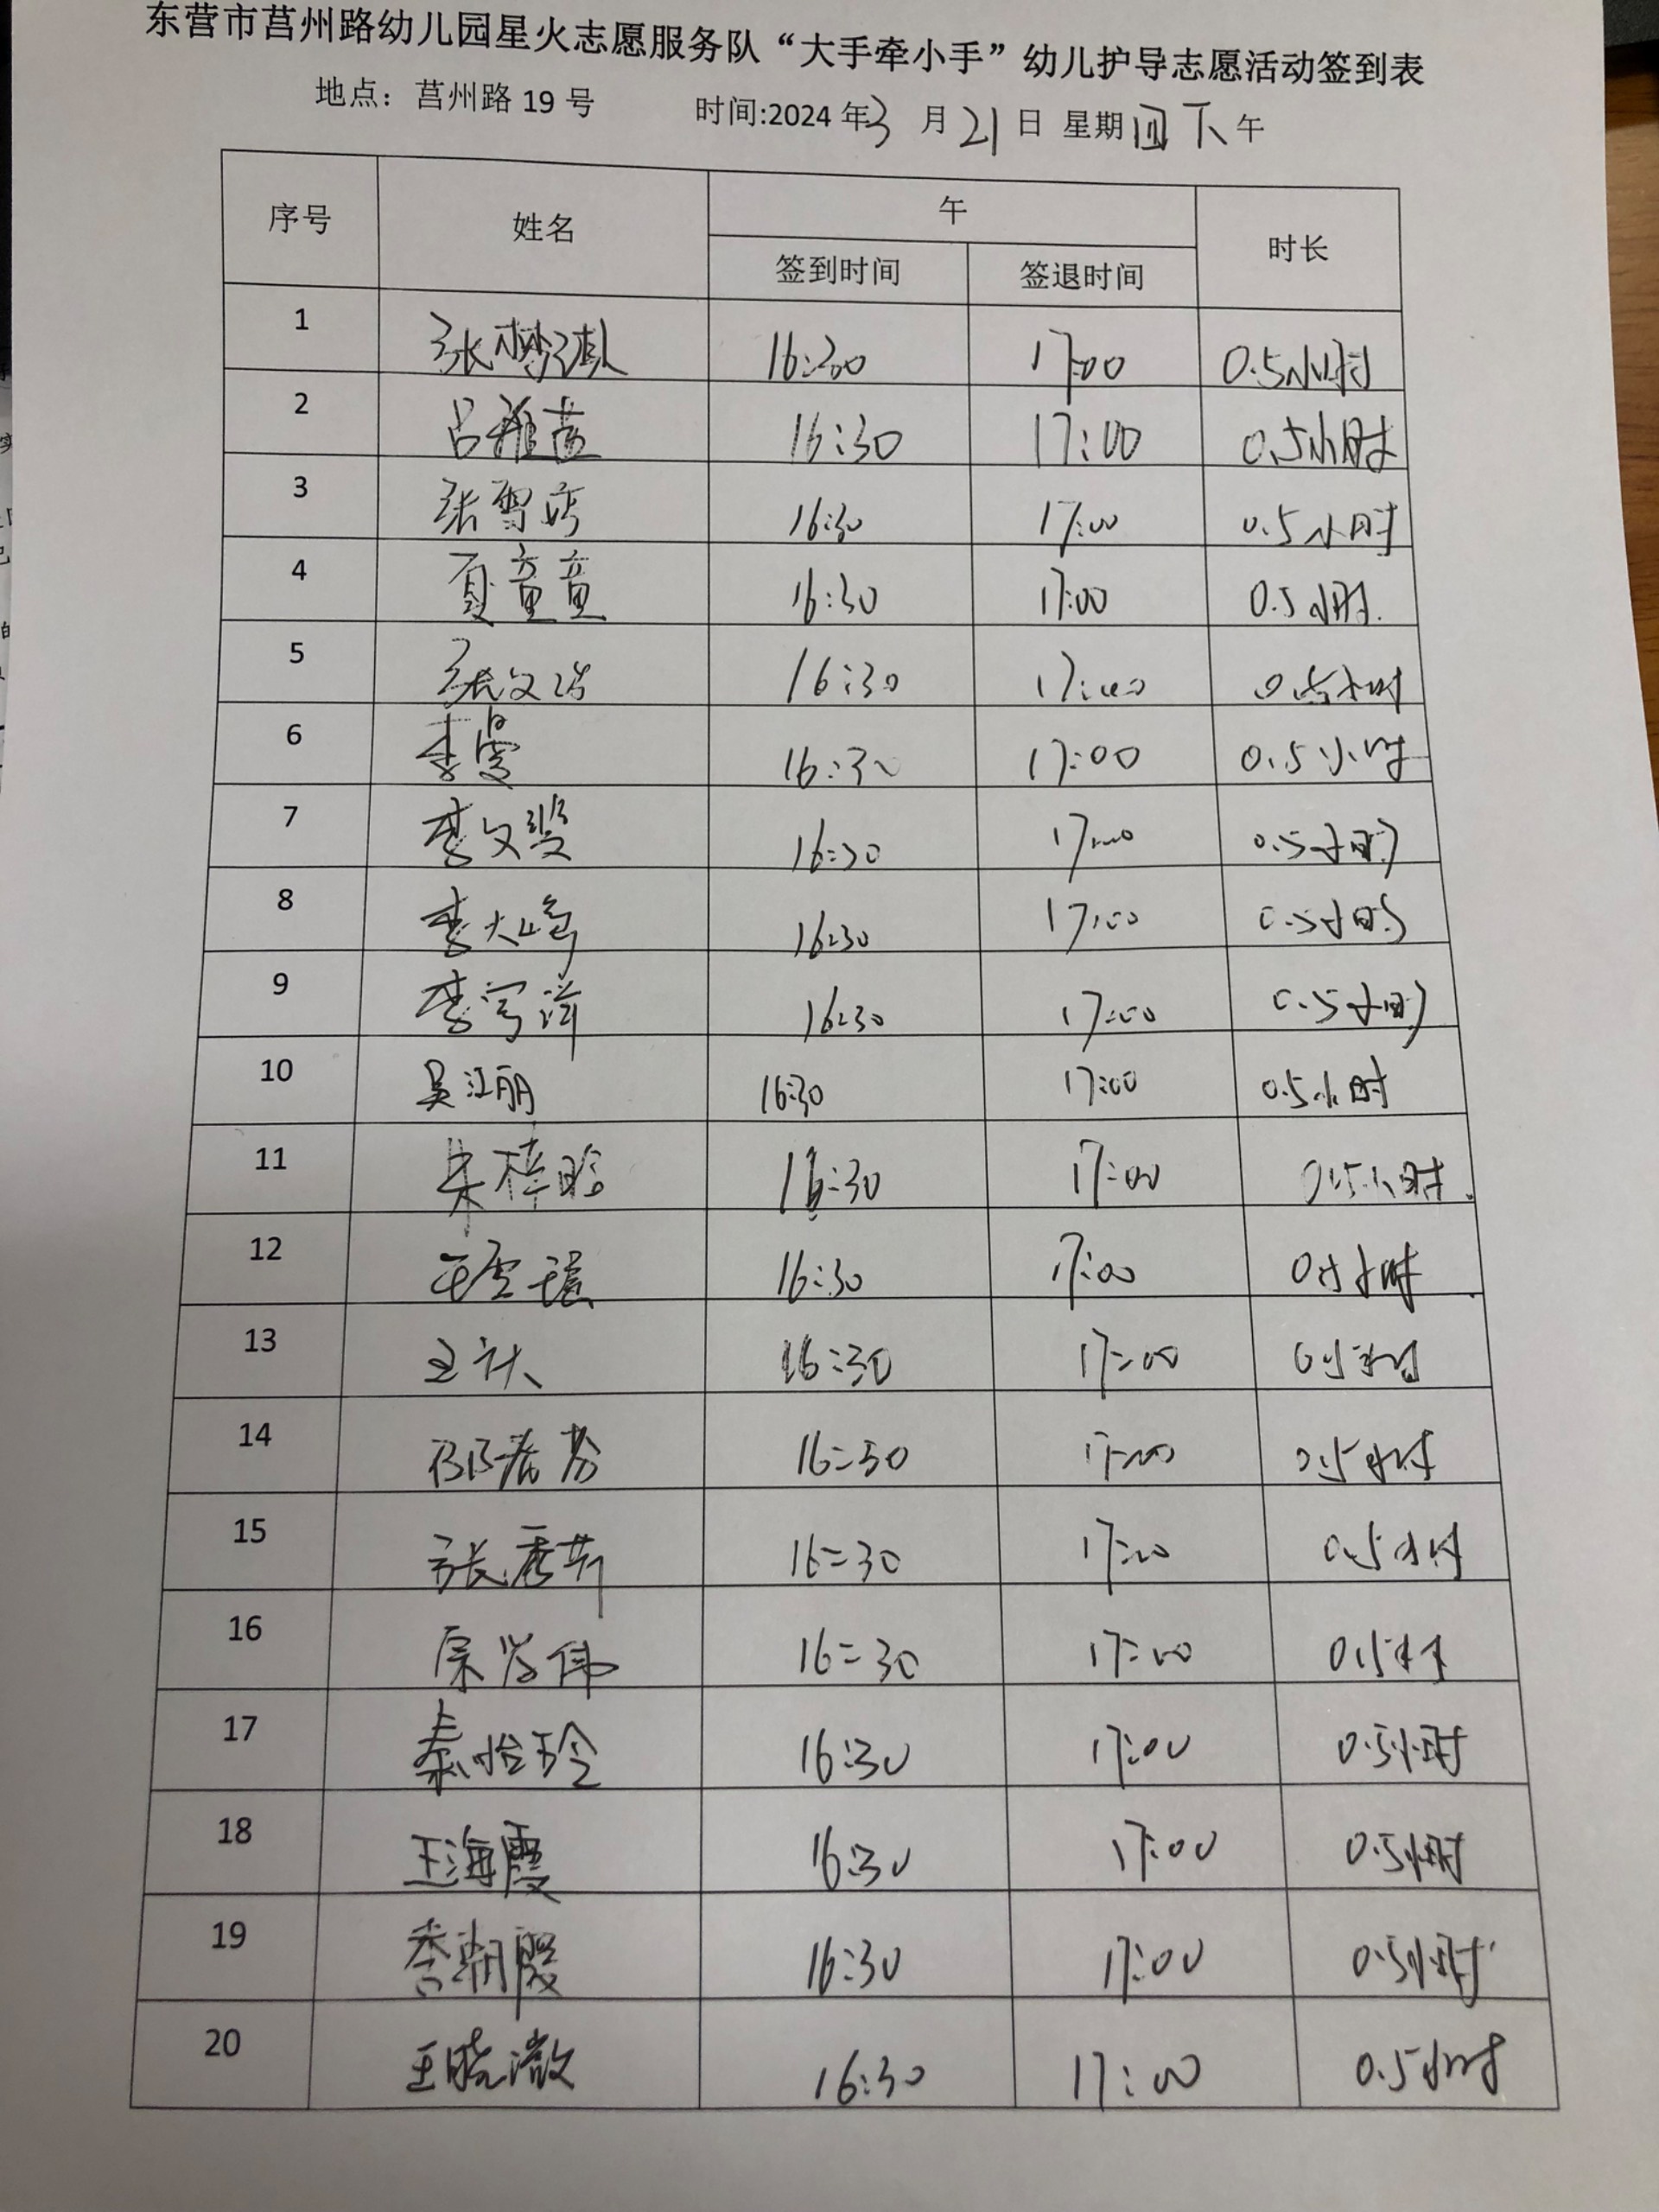 东营市莒州路幼儿园星火志愿服务队“大手牵小手”幼儿护导志愿活动签到表
地点：莒州路 19 号 时间:2024 年3 月 21 日 星期四 下 午
序号 姓名 午 时长
签到时间 签退时间
1 张梦琪 16:30 17:00 0.5小时
2 吕雅茹 16:30 17:00 0.5小时
3 张雪 16:30 17:00 0.5小时
4 夏童童 16:30 17:00 0.5小时.
5 张文 16:30 17:00 0.5小时
6 李曼 16:30 17:00 0.5小时
7 李文 16:30 17:00 0.5小时
8 李大 16:30 17:00 0.5小时
9 李 16:30 17:00 0.5小时
10 吴江丽 16:30 17:00 0.5小时
11 朱梓晗 16:30 17:00 0.5小时.
12 王雪瑶 16:30 17:00 0.5小时
13 王 16:30 17:00 0.5小时
14 邵春芬 16:30 17:00 0.5小时
15 张秀 16:30 17:00 0.5小时
16 宗 伟 16:30 17:00 0.5小时
17 秦怡玲 16:30 17:00 0.5小时
18 王海霞 16:30 17:00 0.5小时
19 李朝霞 16:30 17:00 0.5小时
20 王晓薇 16:30 17:00 0.5小时